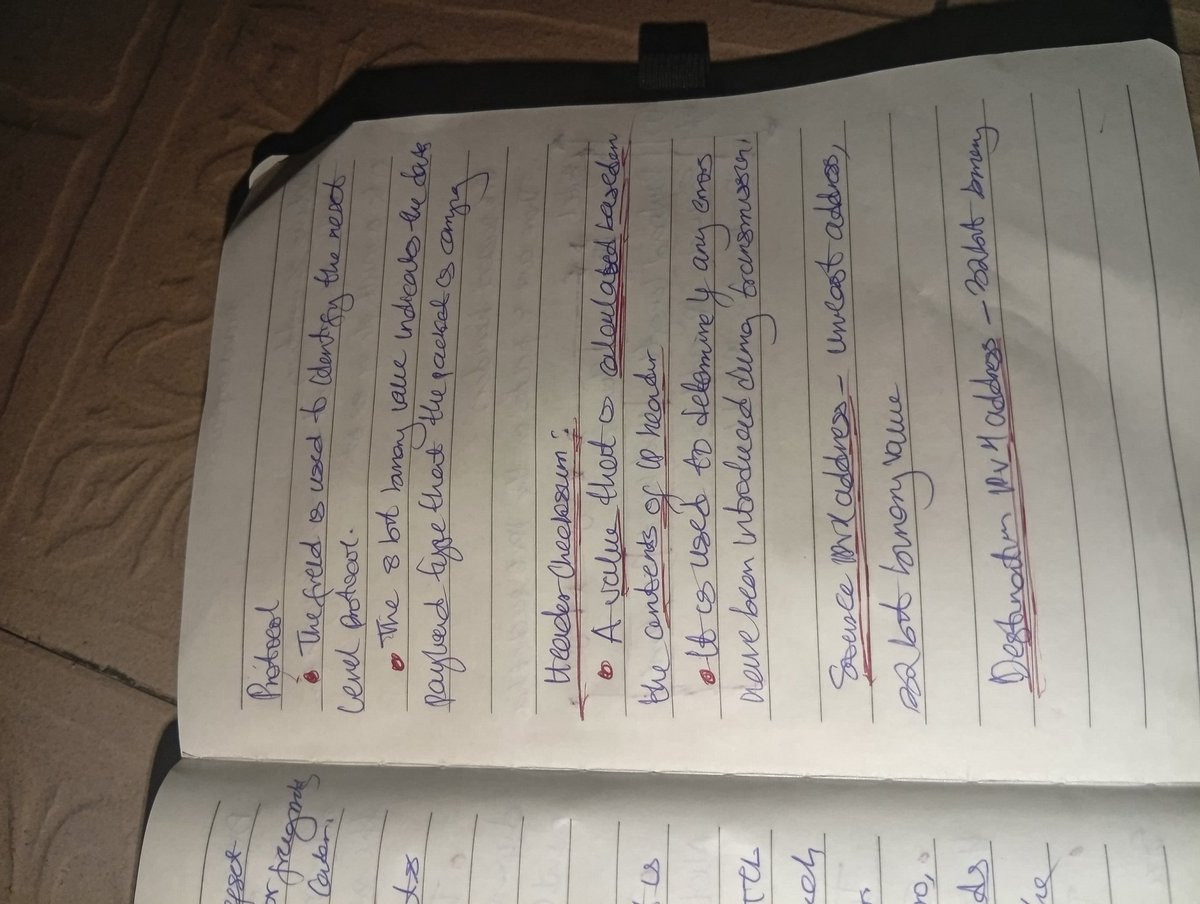 Protocol
• The field is used to identify the next
level protocol.
• The 8 bit binary value indicates the data
payload type that the packet is carrying
Header Checksum :
• A value that is calculated based on
the contents of IP header
• It is used to determine if any errors
have been introduced during transmission.
Source IPv4 address - unicast address,
32 bit binary value
Destination IPv4 address - 32 bit binary
offset
is